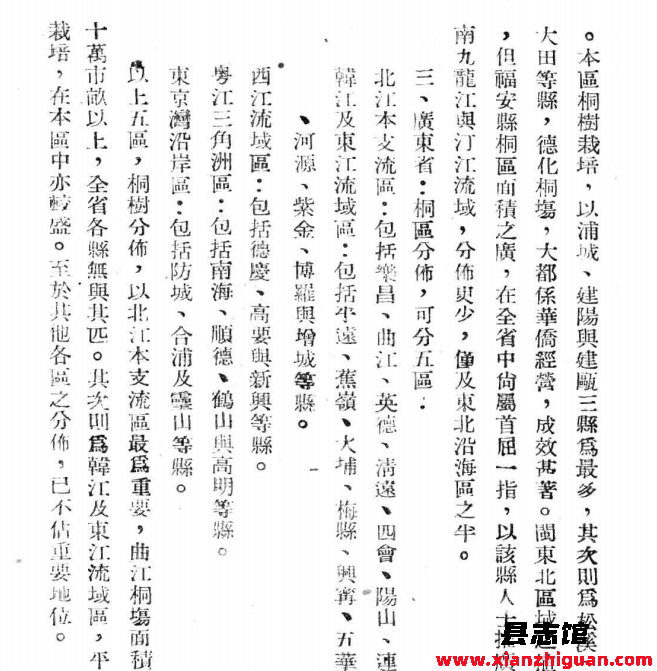 。本區桐樹栽培，以浦城、建陽與建甌三縣爲最多，其次則爲松溪
大田等縣，德化桐塲，大都係華僑經營，成效甚著。閩東北區域
，但福安縣桐區面積之廣，在全省中尙屬首屈一指，以該縣人士
南九龍江與汀江流域，分佈更少，僅及東北沿海區之半。
三、廣東省：桐區分佈，可分五區：
北江本支流區：包括樂昌、曲江、英德、淸遠、四會、陽山、連
韓江及東江流域區：包括平遠、蕉嶺、大埔、梅縣、興寗、五華
、河源、紫金、博羅與增城等縣。
西江流域區：包括德慶、高要與新興等縣。
粵江三角洲區：包括南海、順德、鶴山與高明等縣。
東京灣沿岸區：包括防城、合浦及靈山等縣。
以上五區，桐樹分佈，以北江本支流區最爲重要，曲江桐塲面積
十萬市畝以上，全省各縣無與其匹。其次則爲韓江及東江流域區，平
栽培，在本區中亦較盛。至於其他各區之分佈，已不佔重要地位。
县志馆
www.xianzhiguan.com